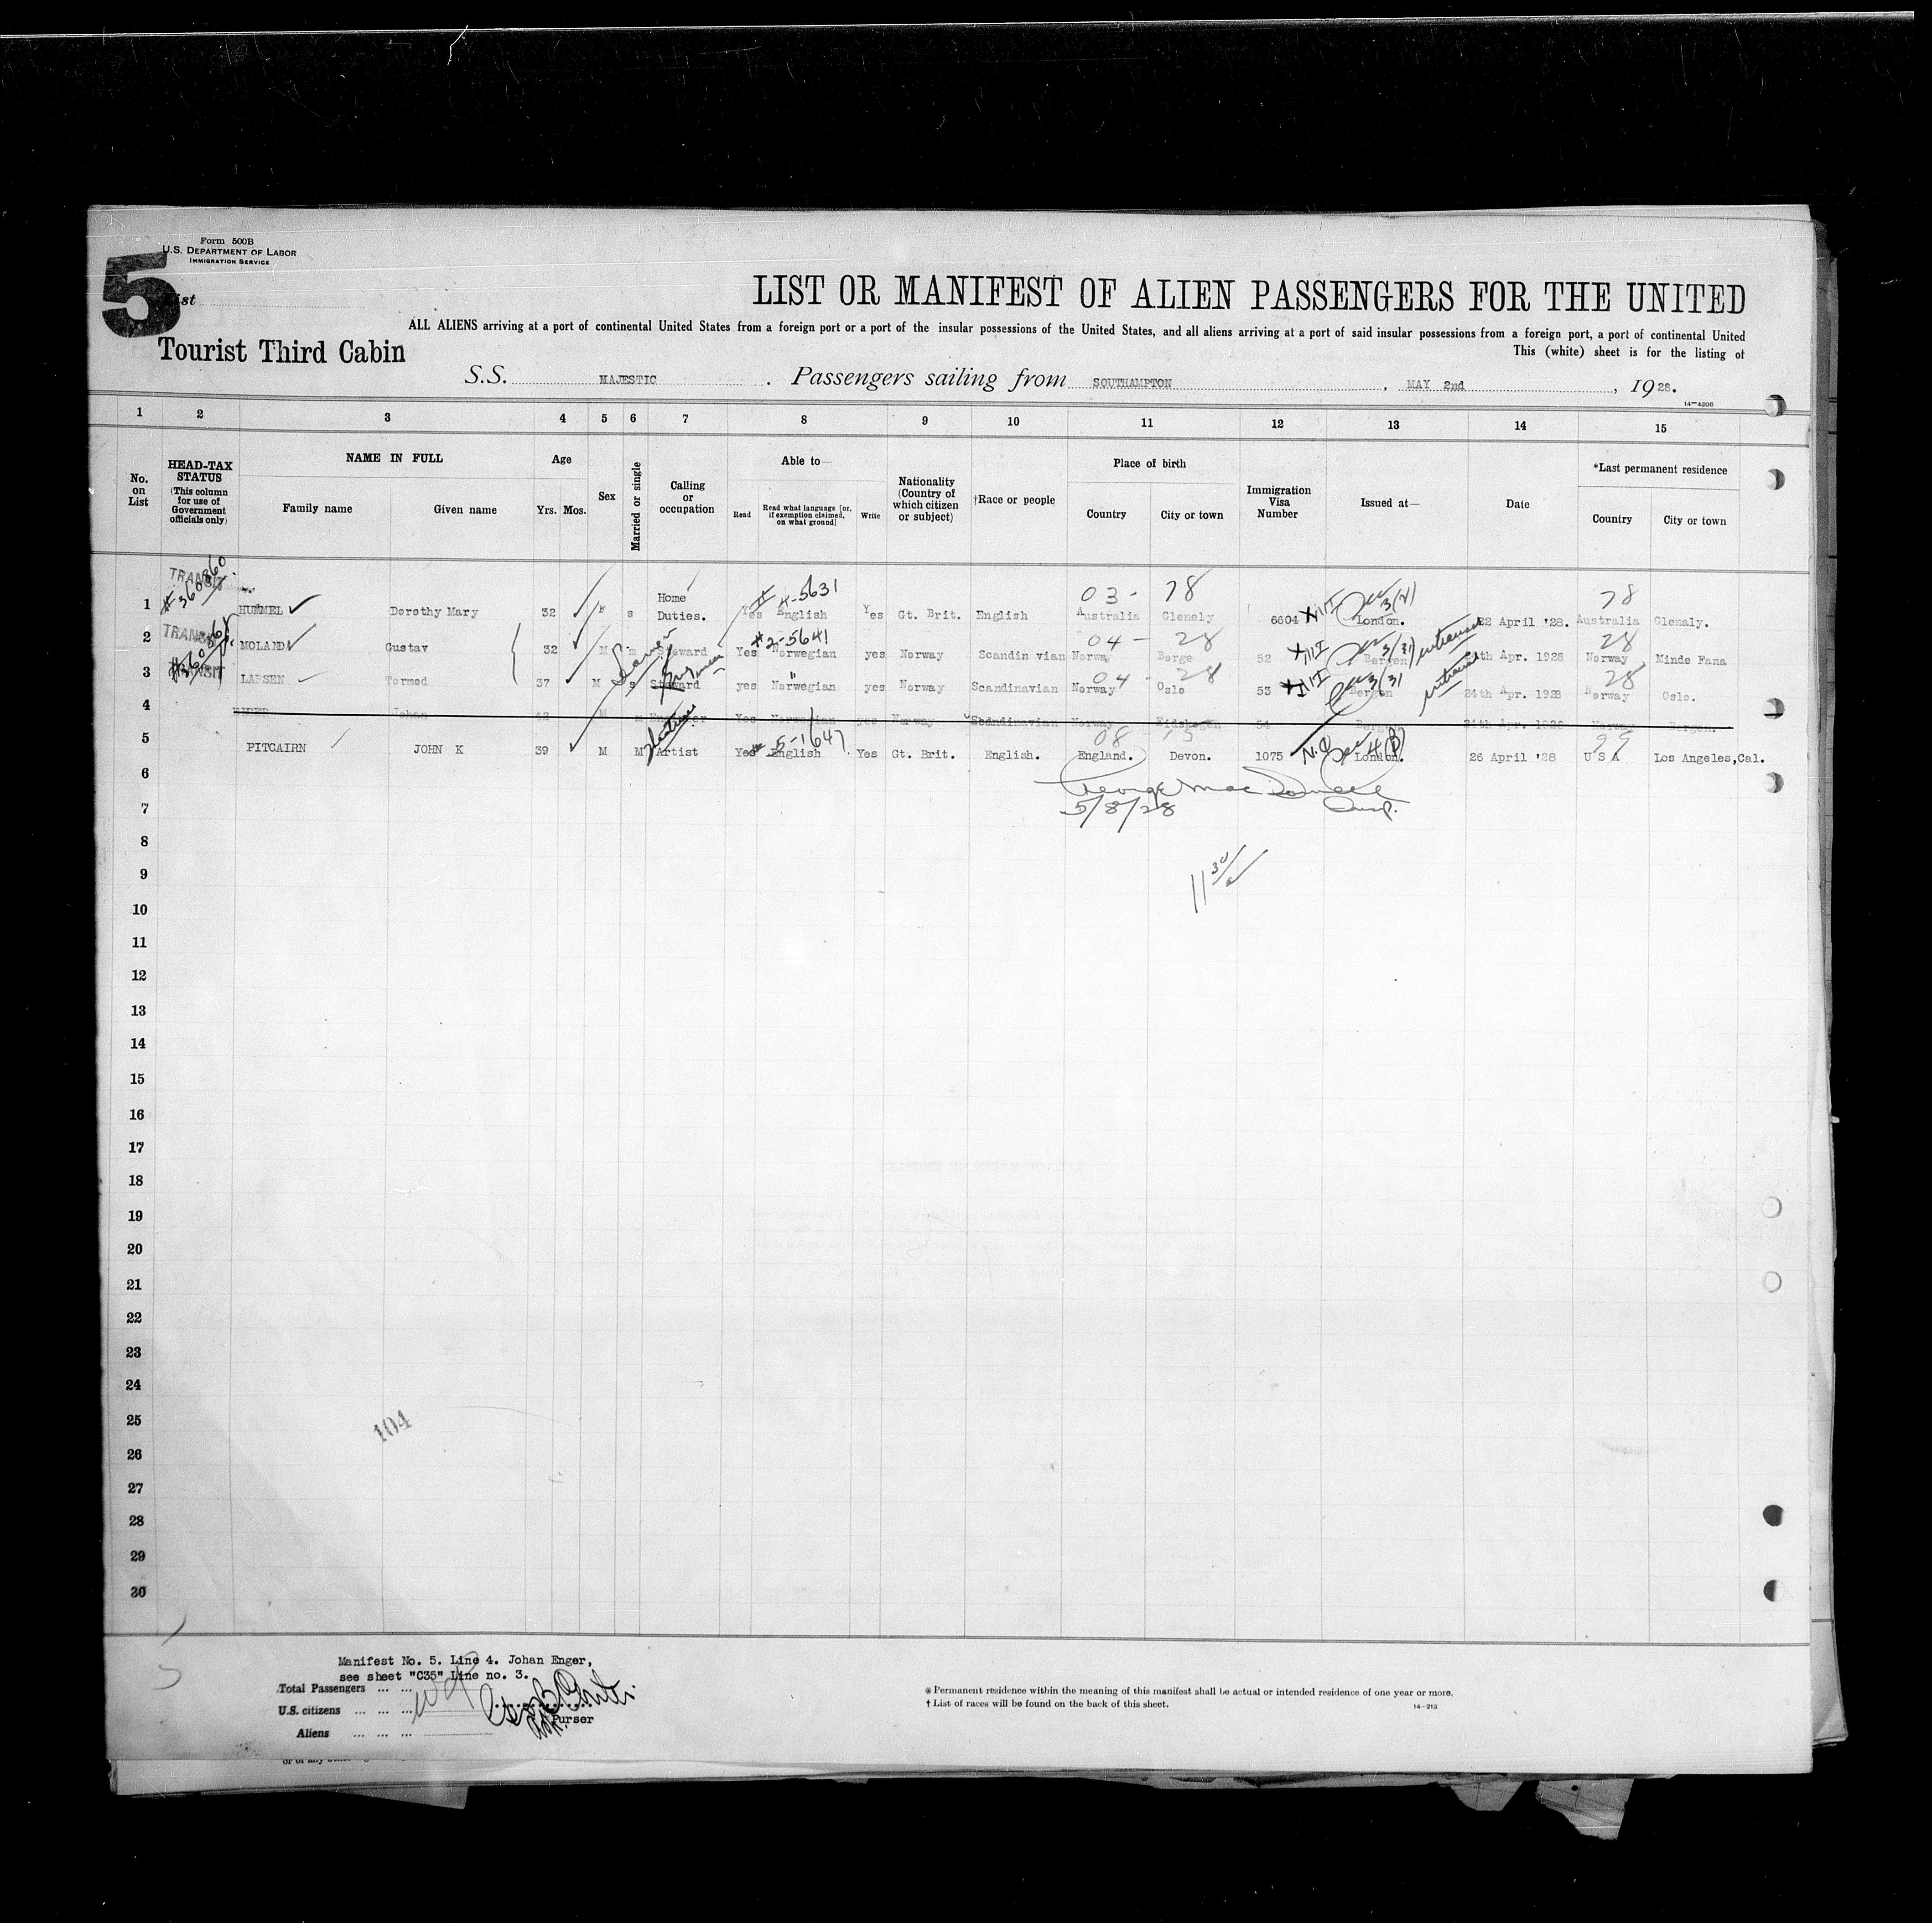 Form 500B
U.S. DEPARTMENT OF LABOR
IMMIGRATION SERVICE
5
List
LIST OR MANIFEST OF ALIEN PASSENGERS FOR THE UNITED
ALL ALIENS arriving at a port of continental United States from a foreign port or a port of the insular possessions of the United States, and all aliens arriving at a port of said insular possessions from a foreign port, a port of continental United
Tourist Third Cabin
This (white) sheet is for the listing of
S.S. MAJESTIC. Passengers sailing from SOUTHAMPTON, MAY 2nd, 1928.
14-420B
1 2 3 4 5 6 7 8 9 10 11 12 13 14 15
No. on List
HEAD-TAX STATUS (This column for use of Government officials only)
NAME IN FULL
Family name Given name
Age
Yrs. Mos.
Sex
Married or single
Calling or occupation
Able to—
Read
Read what language [or, if exemption claimed, on what ground]
Write
Nationality (Country of which citizen or subject)
†Race or people
Place of birth
Country City or town
Immigration Visa Number
Issued at—
Date
*Last permanent residence
Country City or town
TRANSIT 03- 78 78
4-5631
1 HUMMEL Dorothy Mary 32 s Home Duties. Yes English Yes Gt. Brit. English Australia Glenely 6604 London. 22 April '28. Australia Glenaly.
TRANSIT #2-5641 04- 28 28
2 MOLAND Gustav 32 M m Steward Yes Norwegian yes Norway Scandin vian Norway Berge 52 Bergen 24th Apr. 1928 Norway Minde Fana
TRANSIT 04 - 28 28
3 LARSEN Tormod 37 M s Steward yes Norwegian yes Norway Scandinavian Norway Oslo 53 Bergen 24th Apr. 1928 Norway Oslo.
4 Johan M Yes Norwegian yes Norway Scandinavian Norway 54 Bergen 24th Apr. 1928 Norway Bergen.
5-1647 08 99
5 PITCAIRN JOHN K 39 M M Artist Yes English Yes Gt. Brit. English. England. Devon. 1075 London. 26 April '28 U S A Los Angeles,Cal.
6
George Mac
7 5/8/28 Insp.
8
9 11 30
10
11
12
13
14
15
16
17
18
19
20
21
22
23
24
25
104
26
27
28
29
30
Manifest No. 5. Line 4. Johan Enger,
see sheet "C35" Line no. 3.
Total Passengers ... ...
U.S. citizens ... ... ...
Purser
Aliens ... ... ...
* Permanent residence within the meaning of this manifest shall be actual or intended residence of one year or more.
† List of races will be found on the back of this sheet.
14-213